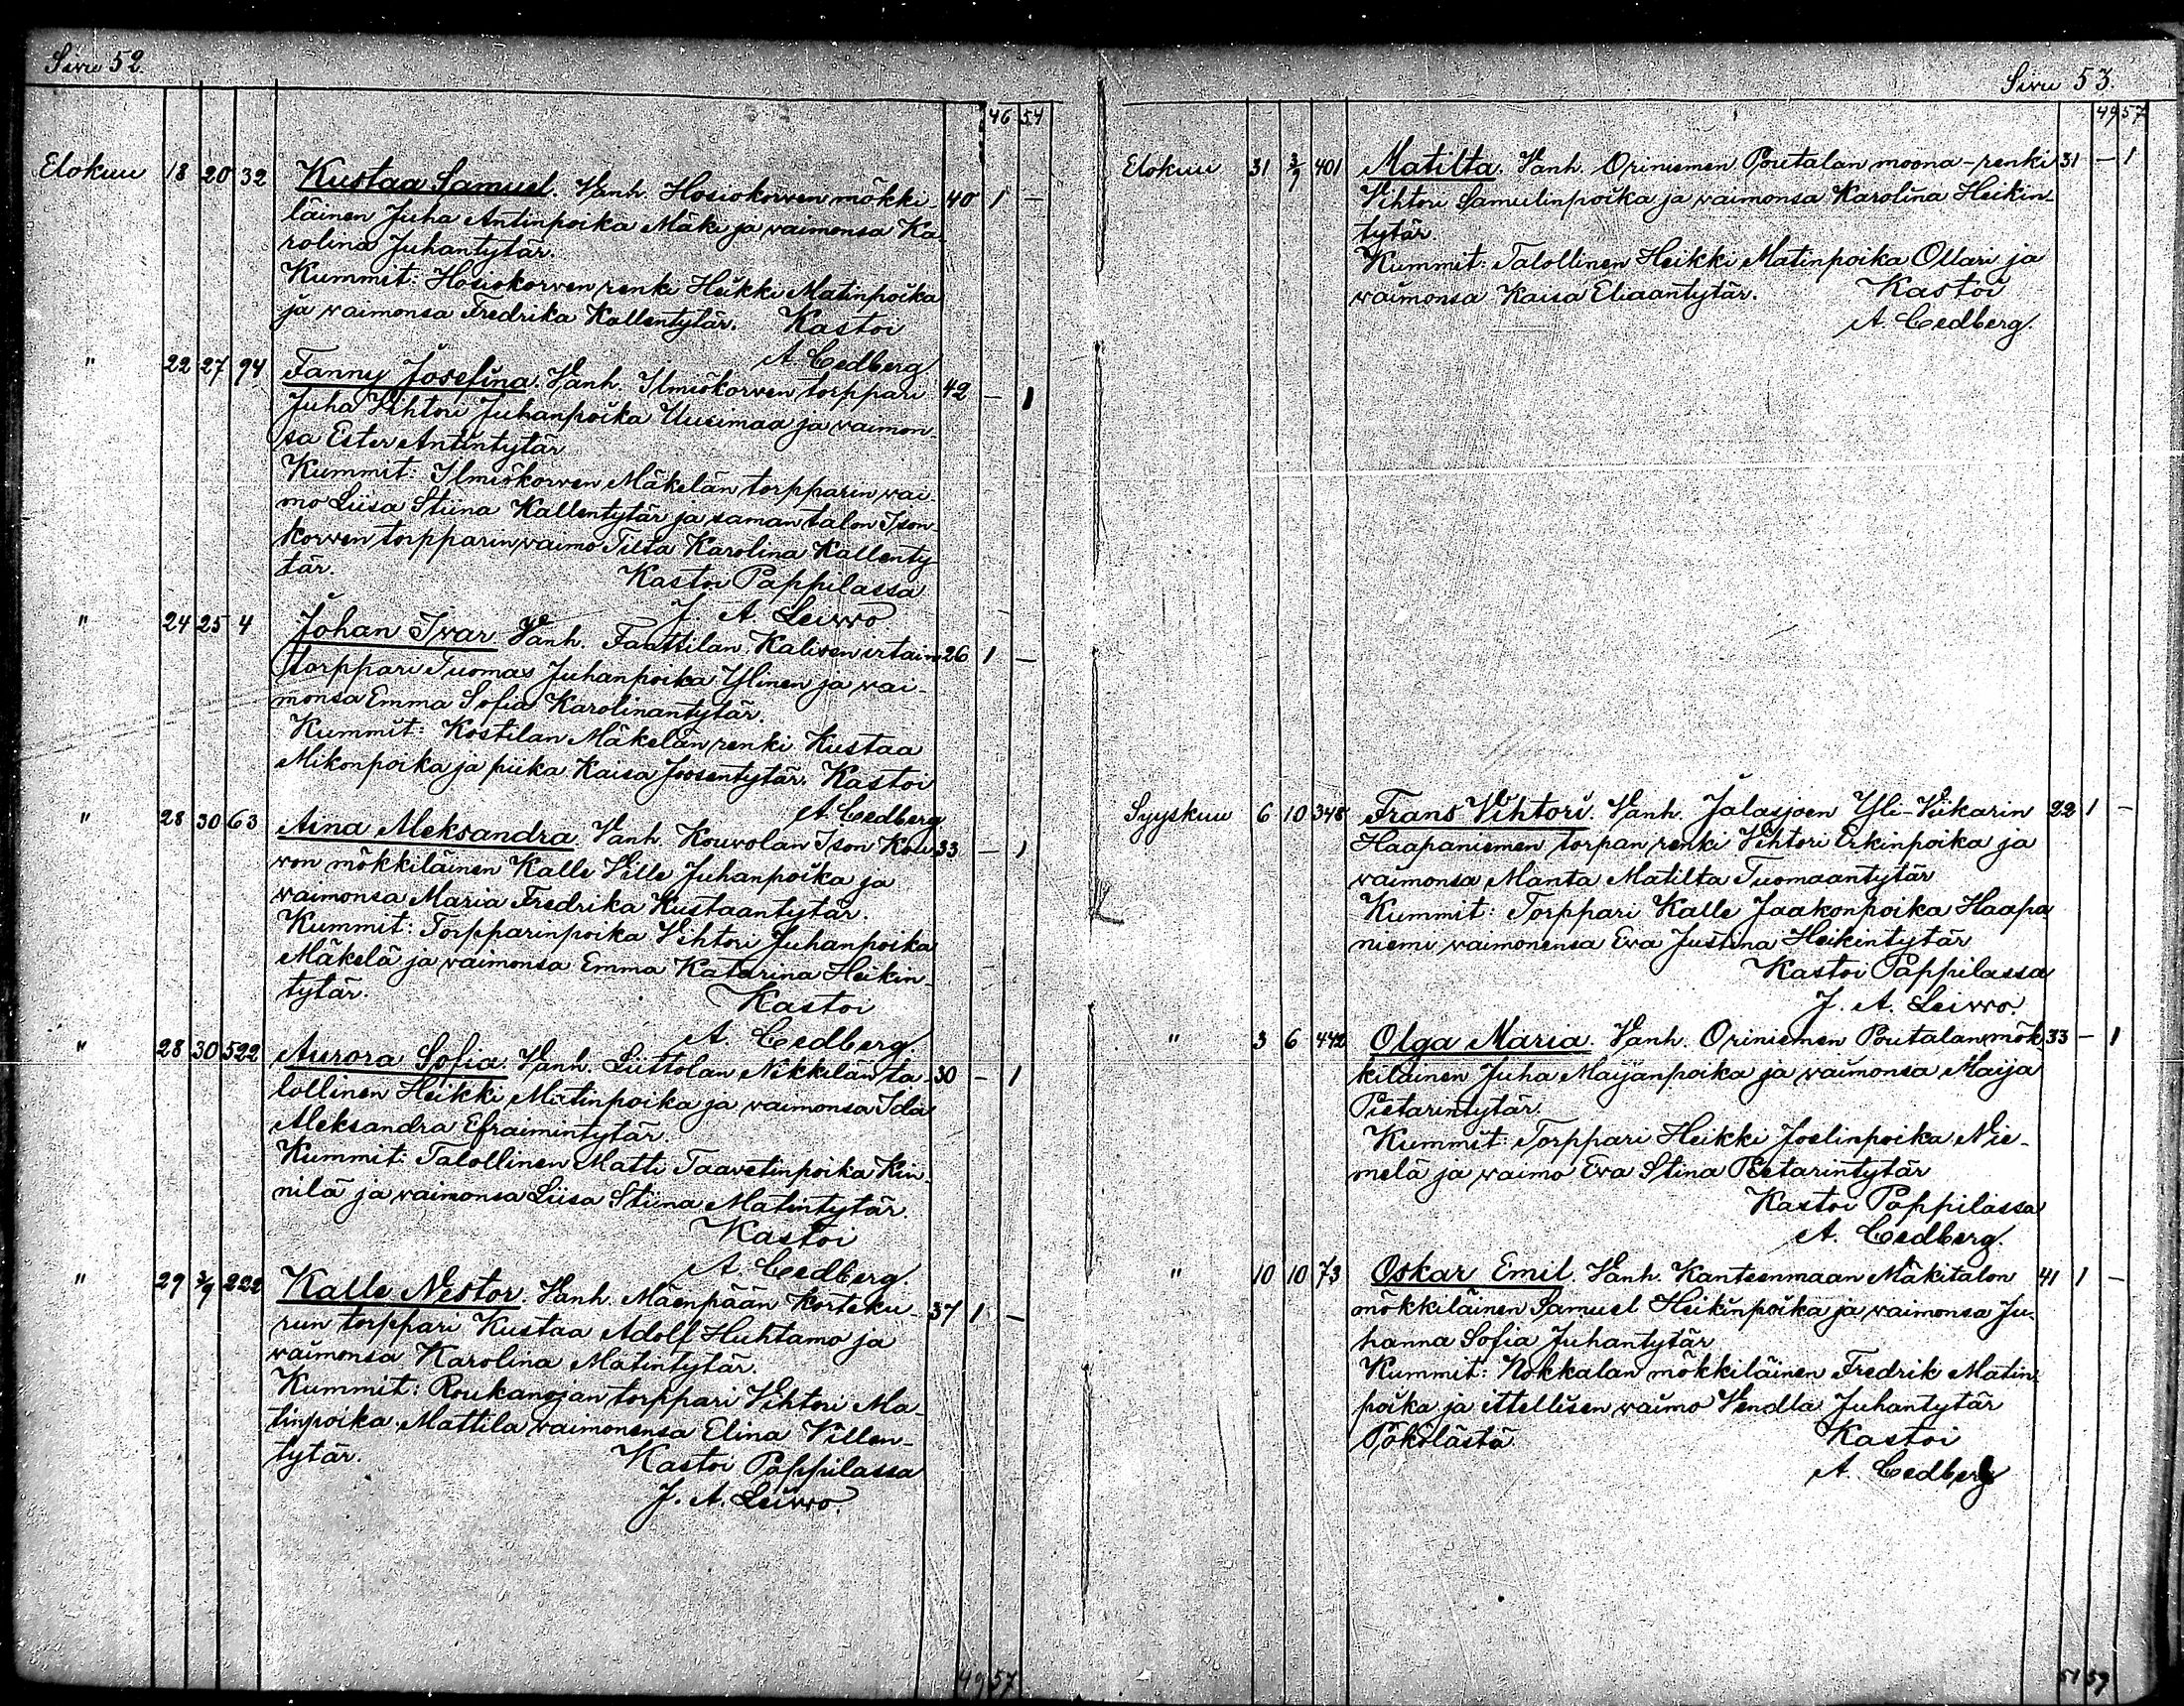 Sivu 52.
46 54
Elokuu 18 20 32 Kustaa Samuel. Vanh. Hosiokorven mökki- 40 1 —
läinen Juha Antinpoika Mäki ja vaimonsa Ka-
rolina Juhantytär.
Kummit: Hosiokorven renki Heikki Matinpoika
ja vaimonsa Fredrika Kallentytär. Kastoi
A. Cedberg
" 22 27 94 Fanny Josefina. Vanh. Ilmiökorven torppari 42 — 1
Juha Vihtori Juhanpoika Uusimaa ja vaimon-
sa Ester Antintytär
Kummit: Ilmiökorven Mäkelän torpparin vai-
mo Liisa Stiina Kallentytär ja saman talon Ison-
korven torpparin vaimo Tilta Karolina Kallenty-
tär. Kastoi Pappilassa
J. A. Leivvo
" 24 25 4 Johan Ivar Vanh. Faattilan Kaliven irtain 26 1 —
torppari Tuomas Juhanpoika Ylinen ja vai-
monsa Emma Sofia Karolinantytär.
Kummit: Kostilan Mäkelän renki Kustaa
Mikonpoika ja piika Kaisa Joosentytär. Kastoi
A. Cedberg
" 28 30 63 Aina Aleksandra. Vanh. Kouvolan Ison Kou- 33 — 1
von mökkiläinen Kalle Ville Juhanpoika ja
vaimonsa Maria Fredrika Kustaantytär.
Kummit: Torpparinpoika Vihtori Juhanpoika
Mäkelä ja vaimonsa Emma Katarina Heikin-
tytär. Kastoi
A. Cedberg.
" 28 30 522 Aurora Sofia. Vanh. Liittolan Nikkilän ta- 30 — 1
lollinen Heikki Matinpoika ja vaimonsa Ida
Aleksandra Efraimintytär.
Kummit: Talollinen Matti Taavetinpoika Kin-
nilä ja vaimonsa Liisa Stiina Matintytär.
Kastoi
A. Cedberg.
" 29 3/9 222 Kalle Nestor. Vanh. Mäenpään Korteku- 37 1 —
run torppari Kustaa Adolf Huhtamo ja
vaimonsa Karolina Matintytär.
Kummit: Roukanojan torppari Vihtori Ma-
tinpoika Mattila vaimonensa Elina Villen-
tytär. Kastoi Pappilassa
J. A. Leivvo.
49 57
Sivu 53.
49 57
Elokuu 31 3/9 401 Matilta. Vanh. Oriniemen Poutalan moona-renki 31 — 1
Vihtori Samulinpoika ja vaimonsa Karolina Heikin-
tytär.
Kummit: Talollinen Heikki Matinpoika Ollari ja
vaimonsa Kaisa Eliaantytär. Kastoi
A. Cedberg.
Syyskuu 6 10 348 Frans Vihtori. Vanh. Jalasjoen Yli-Viikarin 22 1 —
Haapaniemen torpan renki Vihtori Erkinpoika ja
vaimonsa Manta Matilta Tuomaantytär
Kummit: Torppari Kalle Jaakonpoika Haapa
niemi vaimonensa Eva Justina Heikintytär
Kastoi Pappilassa
J. A. Leivvo.
" 3 6 442 Olga Maria. Vanh. Oriniemen Poutalan mök- 33 — 1
kiläinen Juha Maijanpoika ja vaimonsa Maija
Pietarintytär.
Kummit: Torppari Heikki Joelinpoika Nie-
melä ja vaimo Eva Stina Pietarintytär
Kastoi Pappilassa
A. Cedberg.
" 10 10 73 Oskar Emil. Vanh. Kanteenmaan Mäkitalon 41 1 —
mökkiläinen Samuel Heikinpoika ja vaimonsa Ju-
hanna Sofia Juhantytär
Kummit: Nokkalan mökkiläinen Fredrik Matin-
poika ja ittellisen vaimo Vendla Juhantytär
Pökölästä. Kastoi
A. Cedberg
51 59